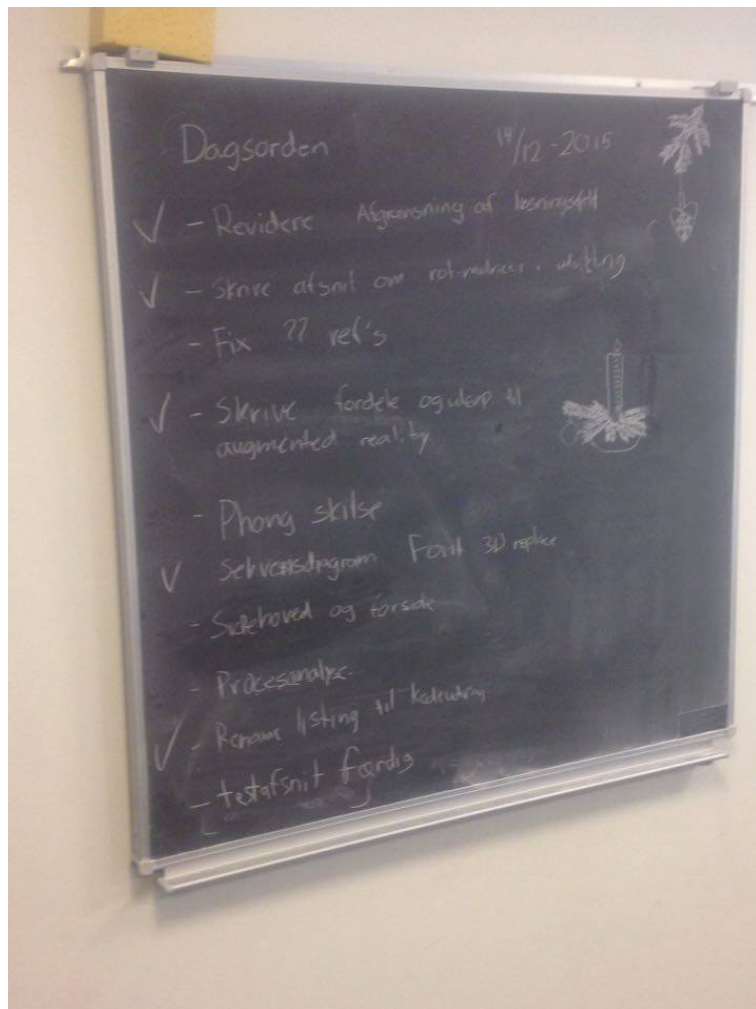 Dagsorden 14/12-2015
✓ - Revidere Afgrænsning af løsningsfelt
✓ - Skrive afsnit om rot-matrices i
- Fix ?? ref's
✓ - Skrive fordele og ulemp til
augmented reality
- Phong skilse
✓ Sekvensdiagram 3D replace
- Sidehoved og forside
- Procesanalyse
✓ - Rename listing til kodeudtag
- testafsnit færdig